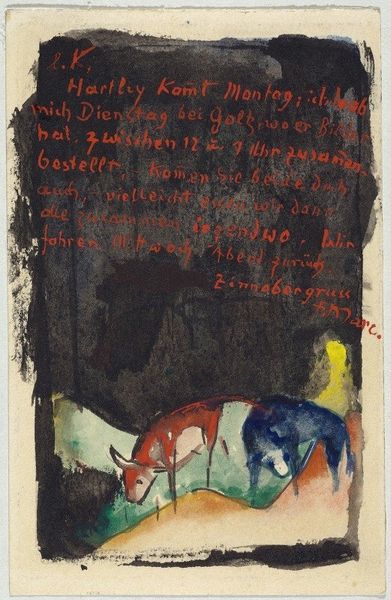 L. K,
Hartley Komt Montag; ich hab
mich Dienstag bei Goltz, wo er Bilder
hat, zwischen 12 u. 1 Uhr zusamen-
bestellt, - Komen Sie beide doch
auch, - vielleicht wir dann
alle zusammen irgendwo. Wir
fahren Mittwoch Abend zurück.
Zinnobergruss
FMarc.